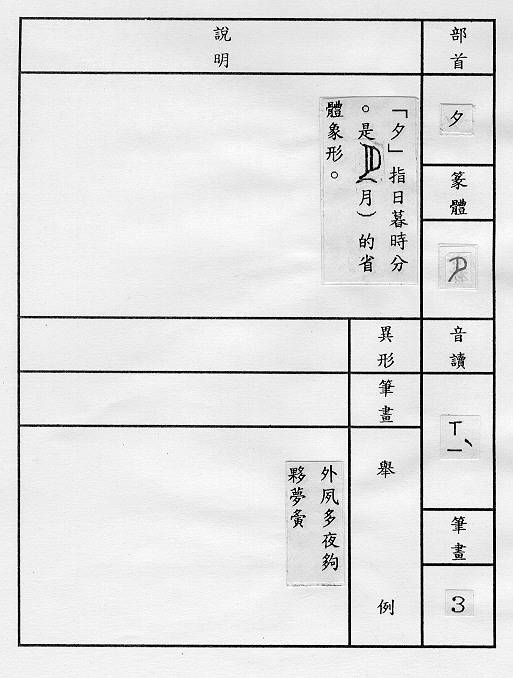 部首
夕
篆體
音讀
ㄒㄧˋ
筆畫
3
說明
「夕」指日暮時分
。是(月)的省
體象形。
異形
筆畫
舉例
外夙多夜夠
夥夢夤